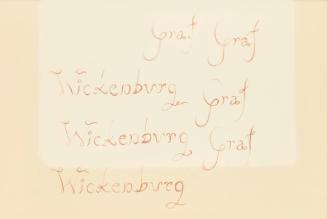 Graf Graf
Wickenburg Graf
Wickenburg Graf
Wickenburg